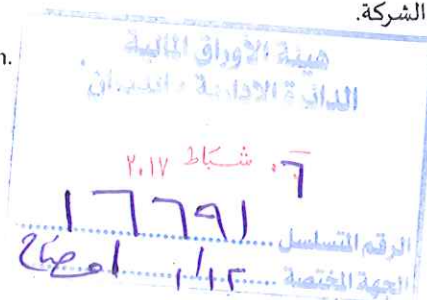 الشركة.
هيئة الأوراق المالية
الدائرة الادارية / الديوان
٠٦ شباط ٢٠١٧
الرقم المتسلسل ١٦٦٩١
الجهة المختصة ١/١٢ افصاح